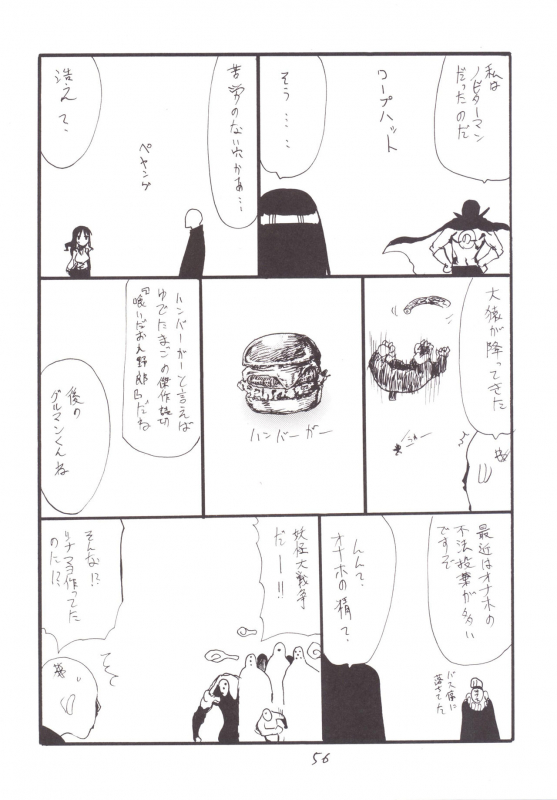 私は
ノビターマン
だったのだ
ワープハット
そう……
苦労のない
ペヤング
浩えて、
大猿が降ってきた
ハンバーガー
ハンバーガーと言えば
ゆでたまごの傑作読切
『喰いだおれ野郎』だね
後の
グルマンくんね
最近はオナホの
不法投棄が多い
ですぞ
バス停に
落ちてた
んんて?
オナホの精て?
妖怪大戦争
だー!!
そんな!?
作ってた
のだ!?
56